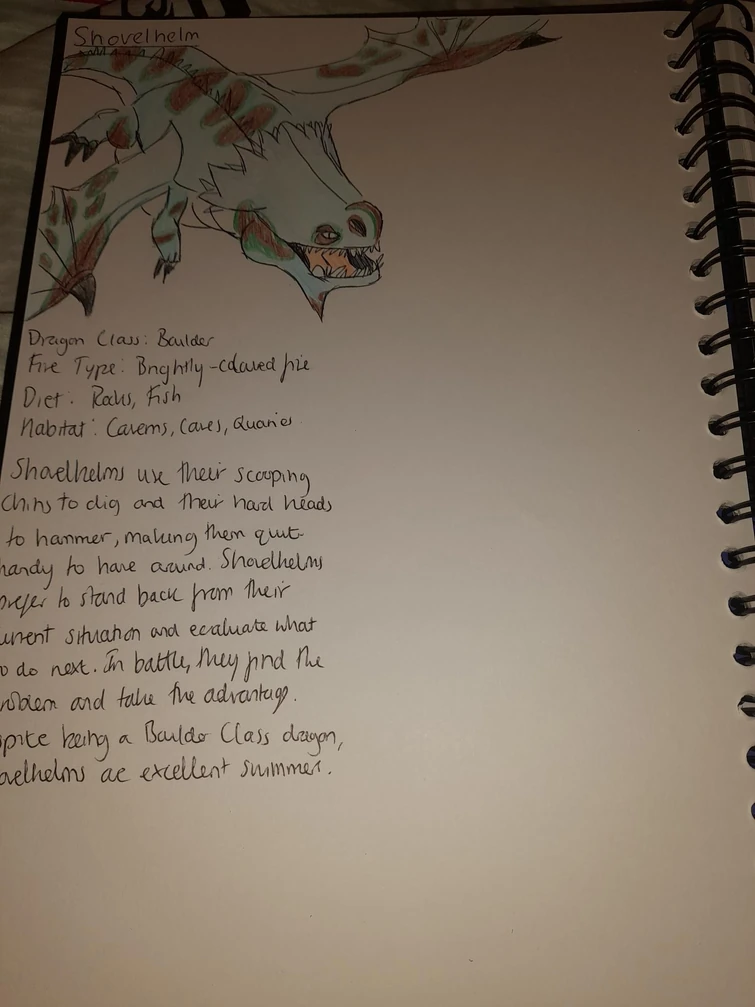 Shovelhelm
Dragon Class: Boulder
Fire Type: Brightly-coloured fire
Diet: Rocks, Fish
Habitat: Caverns, Caves, Quarries
Shovelhelms use their scooping
Chins to dig and their hard heads
to hammer, making them quite
handy to have around. Shovelhelms
prefer to stand back from their
urrent situation and evaluate what
o do next. In battle, they find the
roblem and take the advantage.
spite being a Boulder Class dragon,
ovelhelms are excellent swimmers.